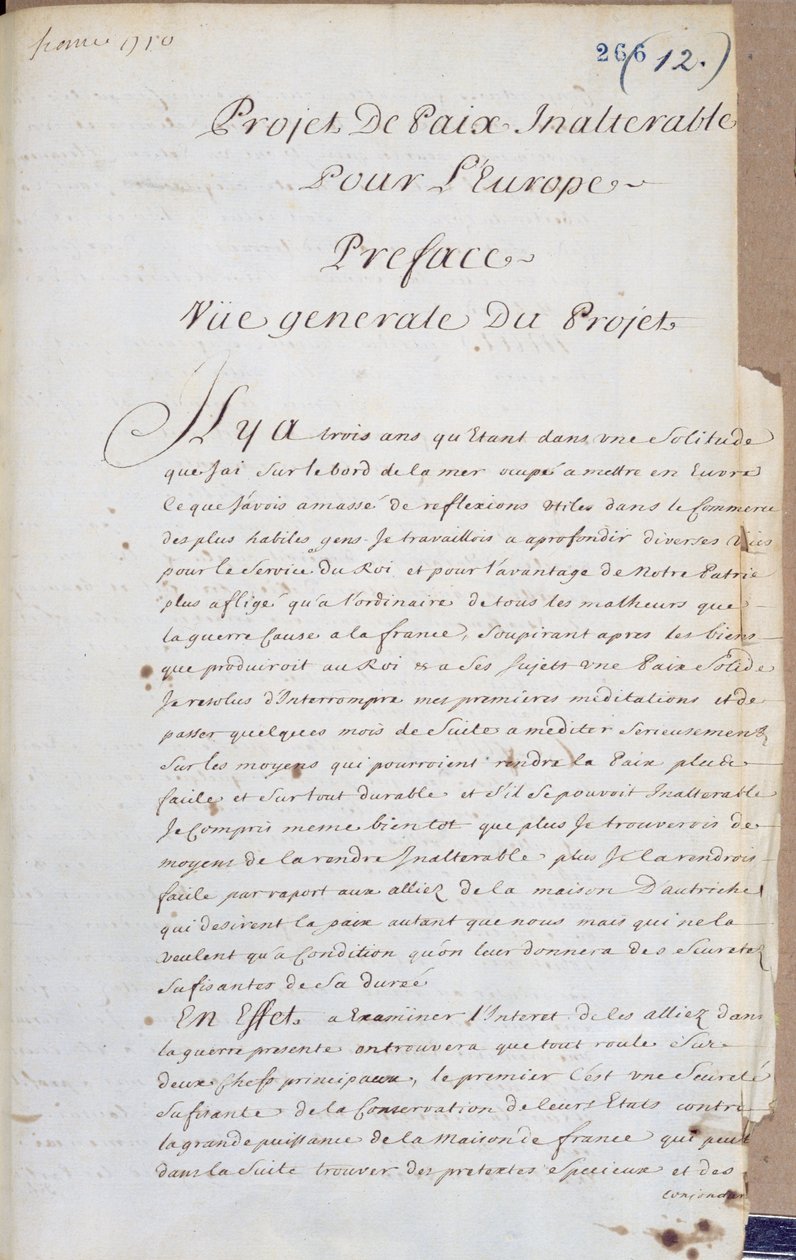 france 1710
266 (12.)
Projet De Paix Inalterable
Pour L'Europe
Preface
Vüe generale Du Projet
Il y A trois ans qu'Etant dans une Solitude
que J'ai Sur le bord de la mer ocupé a mettre en Euvre
ce que J'avois amassé de reflexions Utiles dans le Commerce
des plus habiles gens. Je travaillois a aprofondir diverses Vües
pour le Service du Roi et pour l'avantage de Notre Patrie
plus afligé qu'a l'ordinaire de tous les malheurs que
la guerre Cause a la france, Soupirant apres les biens
que produiroit au Roi & a Ses Sujets une Paix Solide
Je resolus d'Interrompre mes premieres meditations et de
passer quelques mois de Suite a mediter Serieusement
Sur les moyens qui pourroient rendre la Paix plus
facile et Sur tout durable et S'il Se pouvoit Inalterable
Je Compris meme bientot que plus Je trouverois de
moyens de la rendre Inalterable plus Je la rendrois
facile par raport aux alliez de la maison D'autriche
qui desirent la paix autant que nous mais qui ne la
veulent qu'a Condition qu'on leur donnera des Seuretez
Sufisantes de Sa durée
En Effet a Examiner l'Interet de les alliez dans
la guerre presente on trouvera que tout roule Sur
deux Chefs principaux, le premier C'est une Seureté
Sufisante de la Conservation de leurs Etats contre
la grande puissance de la Maison de france qui peut
dans la Suite trouver des pretextes specieux et des